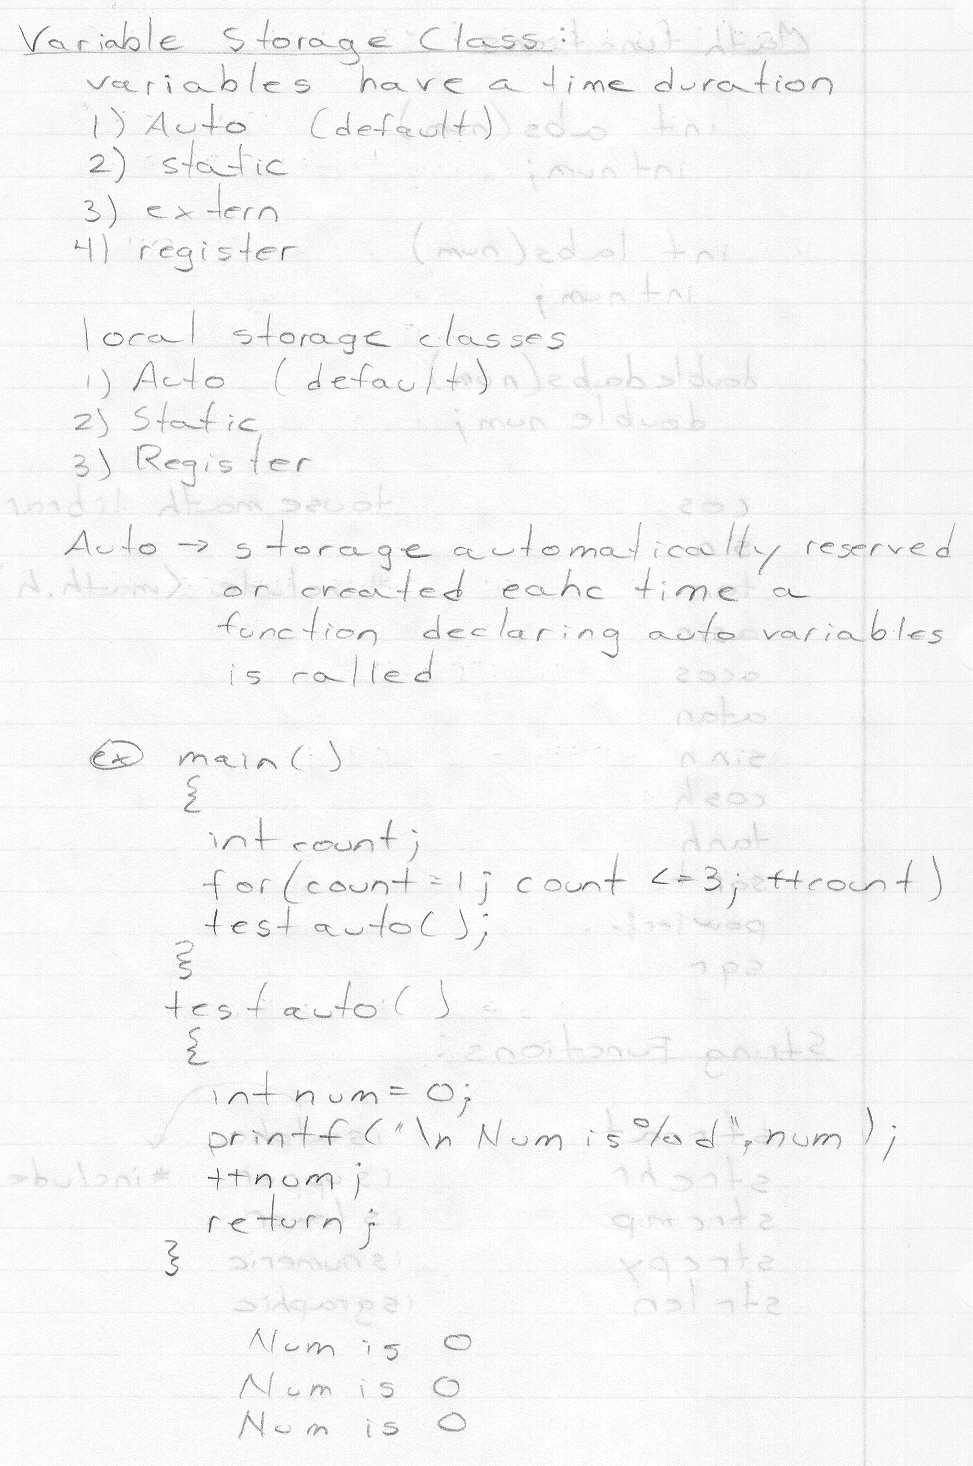 Variable Storage Class:
variables have a time duration
1) Auto (default)
2) static
3) extern
4) register
local storage classes
1) Auto (default)
2) Static
3) Register
Auto → storage automatically reserved
or created eahc time a
function declaring auto variables
is called
ex main()
{
int count;
for(count=1; count <=3; ++count)
testauto();
}
testauto()
{
int num = 0;
printf("\n Num is %d", num);
++num;
return;
}
Num is 0
Num is 0
Num is 0